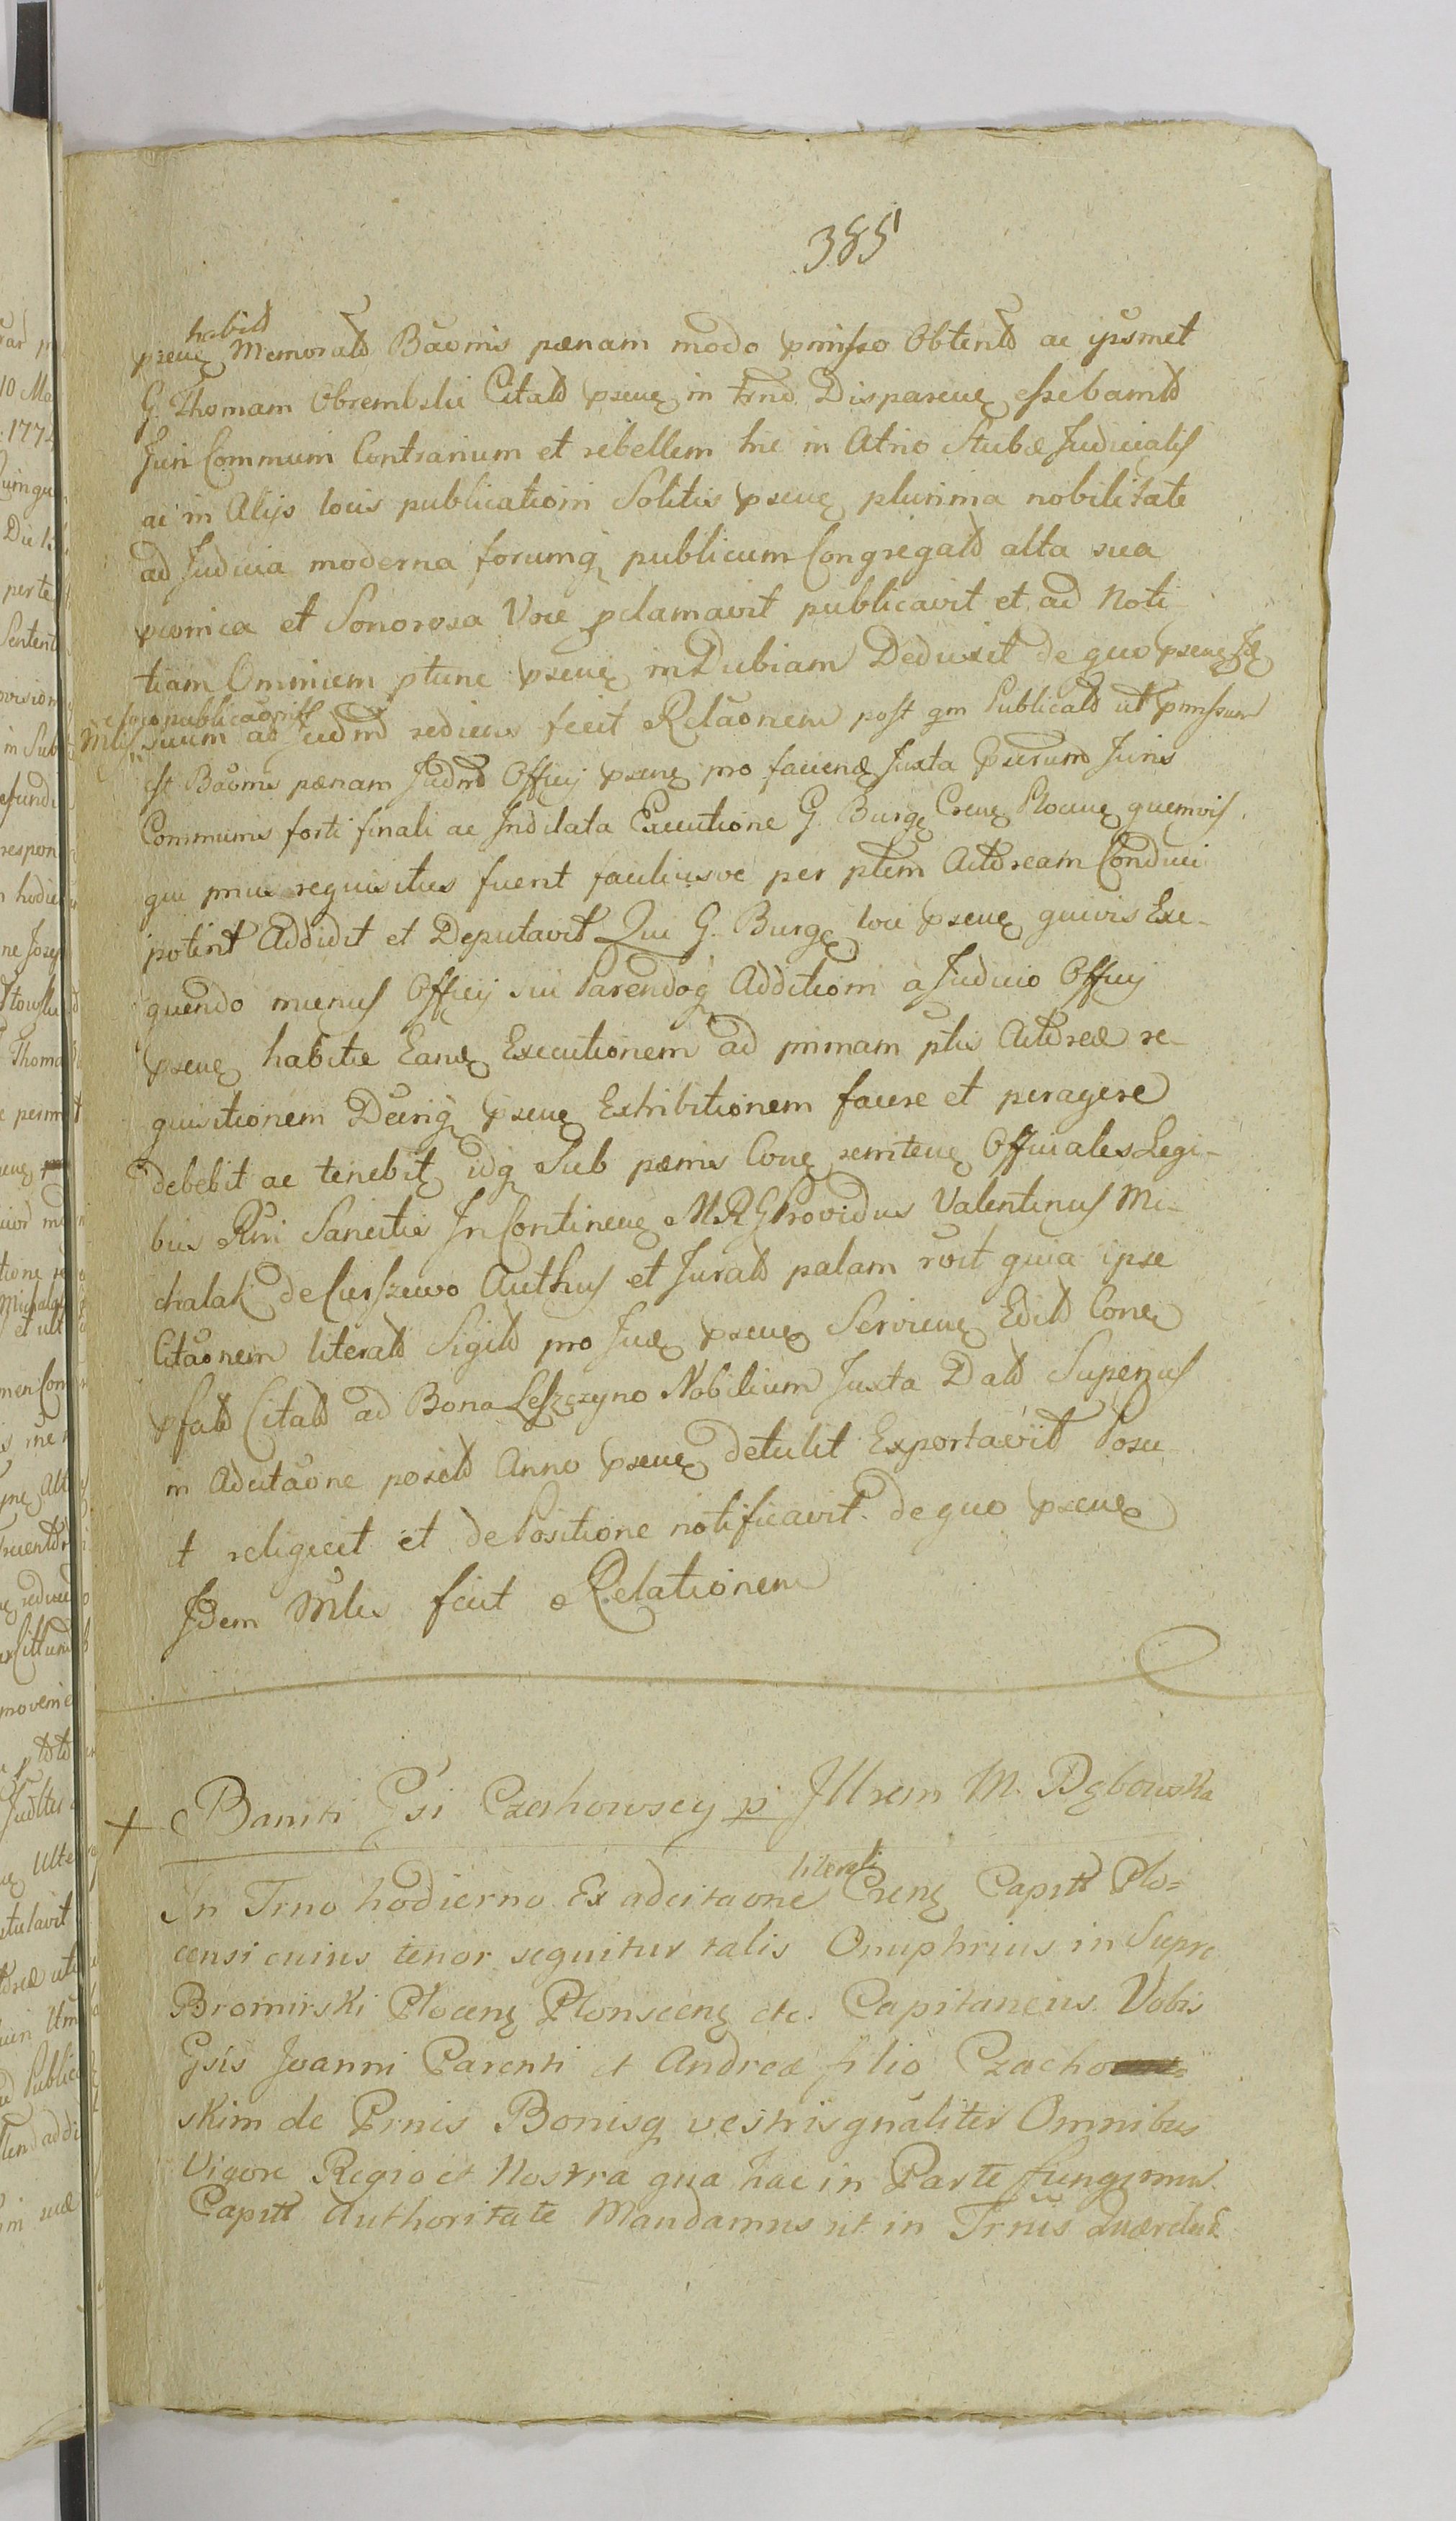 385
habitđ
pseue Memoratđ Bãonis pænam modo pmisso Obtentđ ac ipsmet
G. Thomam Obrembski Citatđ pseue in trnõ Dispareue esse banitđ
Juri Communi Contrarium et rebellem hic in Atrio Stubæ Judicialis
ac in Alijs locis publicationi Solitis pseue plurima nobilitate
ad Judicia moderna forumq publicum Congregatđ alta sua
pconica et Sonorosa Voce pclamavit publicavit et ad Noti
tiam Omniem ptune pseue in Dubiam Deduxit de quo pseue Jđ
e loco publicaõnis
Mlis suum ad Judmđ rediens fecit Relãonem post qm Publicatđ ut pmissum
est Bãonis pænam Judmđ Officij pseue pro faciende Juxta pserum Juris
Communis forti finali ac Indilata Executione G. Burge Creue Plocue quemvis
qui prius requisitus fuerit faciliusve per ptem Actoream Conduci
poterit Addidit et Deputavit Qui G. Burge loci pseue quivis Exe-
quendo munus Officij sui Parendoq Additioni a Judicio Officij
pseue habitæ Eande Executionem ad primam ptis Actoreæ re-
quisitionem Decriq pseue Exhibitionem facere et peragere
debebit ac tenebit idq Sub pænis Cone remiteue Officiales Legi-
bus Rni Sancitis In Contineue MRG Providus Valentinus Mi-
chalak de Cierszewo Authus et Juratđ palam rõit quia ipse
Citãonem literatđ Sigitđ pro Jue pseue Servieue Editđ Cone
pfatđ Citatđ ad Bona Leszczyno Nobilium Juxta Datđ Superius
in Adcitãone positđ Anno pseue detulit Exportavit Posu-
it reliquit et de Positione notificavit de quo pseue
Idem Mlis fecit Relationem
+ Baniti Gsi Czachowscy p Illrem M. Dębowska
literali
In Trno hodierno Ex adcitaone Crene Capitt Plo=
censi cuius tenor sequitur talis Onuphrius in Supre
Bromirski Plocene Plonscene etc. Capitaneus. Vobis
Gsis Joanni Parenti et Andreæ filio Czacho
skim de Prnis Bonisq vestris gnãliter Omnibus
Vigore Regio et Nostra qua hac in Parte fungimur
Capitt Authoritate Mandamus ut in Trnis Quærelar